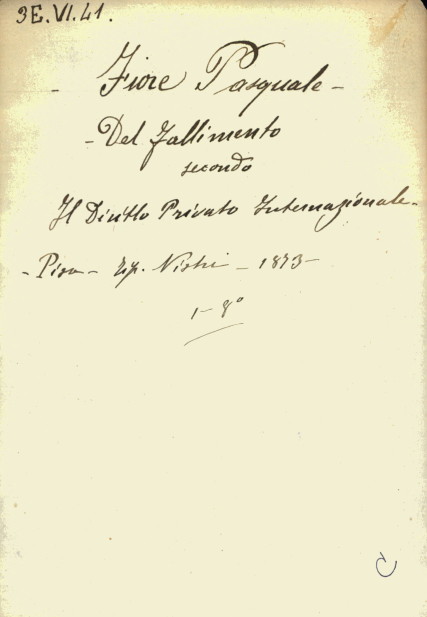 3E.VI.41.
- Fiore Pasquale -
- Del fallimento
secondo
Il Diritto Privato Internazionale -
- Pisa - Tip. Nistri - 1873 -
1 - 8°
C